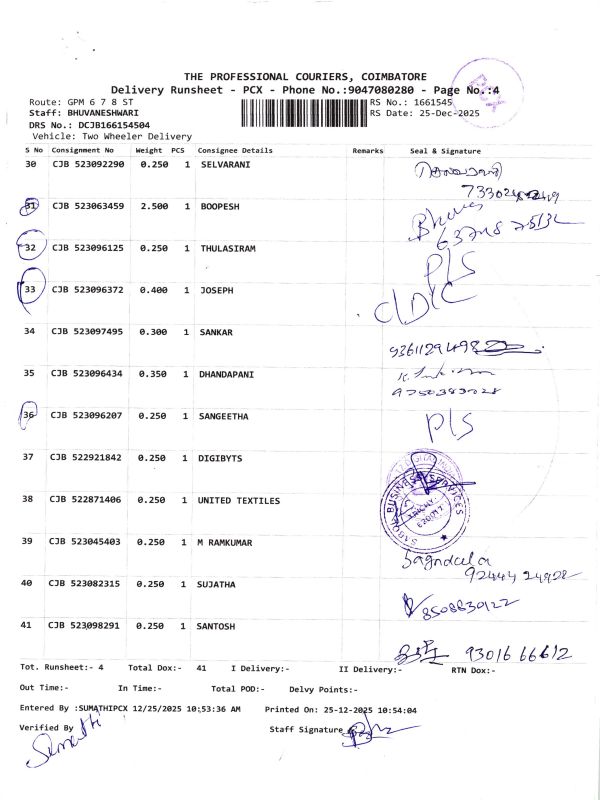 THE PROFESSIONAL COURIERS, COIMBATORE
Delivery Runsheet - PCX - Phone No.:9047080280 - Page No.:4
Route: GPM 6 7 8 ST
RS No.: 1661545
Staff: BHUVANESHWARI
RS Date: 25-Dec-2025
DRS No.: DCJB166154504
Vehicle: Two Wheeler Delivery
S No Consignment No Weight PCS Consignee Details Remarks Seal & Signature
30 CJB 523092290 0.250 1 SELVARANI
31 CJB 523063459 2.500 1 BOOPESH
32 CJB 523096125 0.250 1 THULASIRAM P/S
33 CJB 523096372 0.400 1 JOSEPH C/D/C
34 CJB 523097495 0.300 1 SANKAR
35 CJB 523096434 0.350 1 DHANDAPANI
9750383028
36 CJB 523096207 0.250 1 SANGEETHA P/S
37 CJB 522921842 0.250 1 DIGIBYTS
38 CJB 522871406 0.250 1 UNITED TEXTILES
BUSINESS SERVICES
39 CJB 523045403 0.250 1 M RAMKUMAR
9244424928
40 CJB 523082315 0.250 1 SUJATHA
8508830122
41 CJB 523098291 0.250 1 SANTOSH
9301666612
Tot. Runsheet:- 4 Total Dox:- 41 I Delivery:- II Delivery:- RTN Dox:-
Out Time:- In Time:- Total POD:- Delvy Points:-
Entered By :SUMATHIPCX 12/25/2025 10:53:36 AM Printed On: 25-12-2025 10:54:04
Verified By Staff Signature
Sumathi